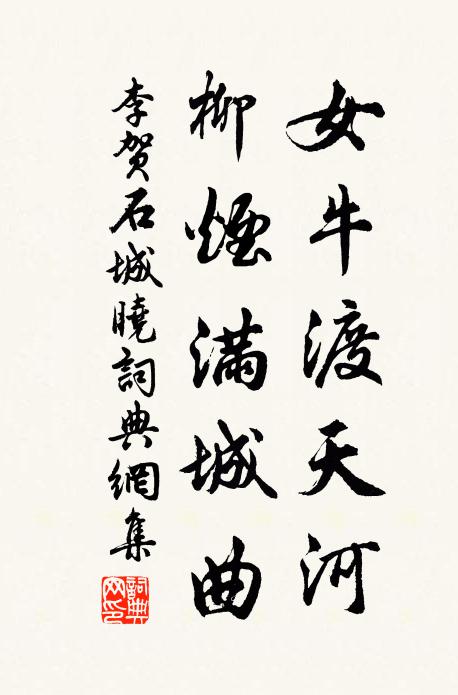 女牛渡天河
柳煙滿城曲
李賀石城曉詞典網集
詞典网印